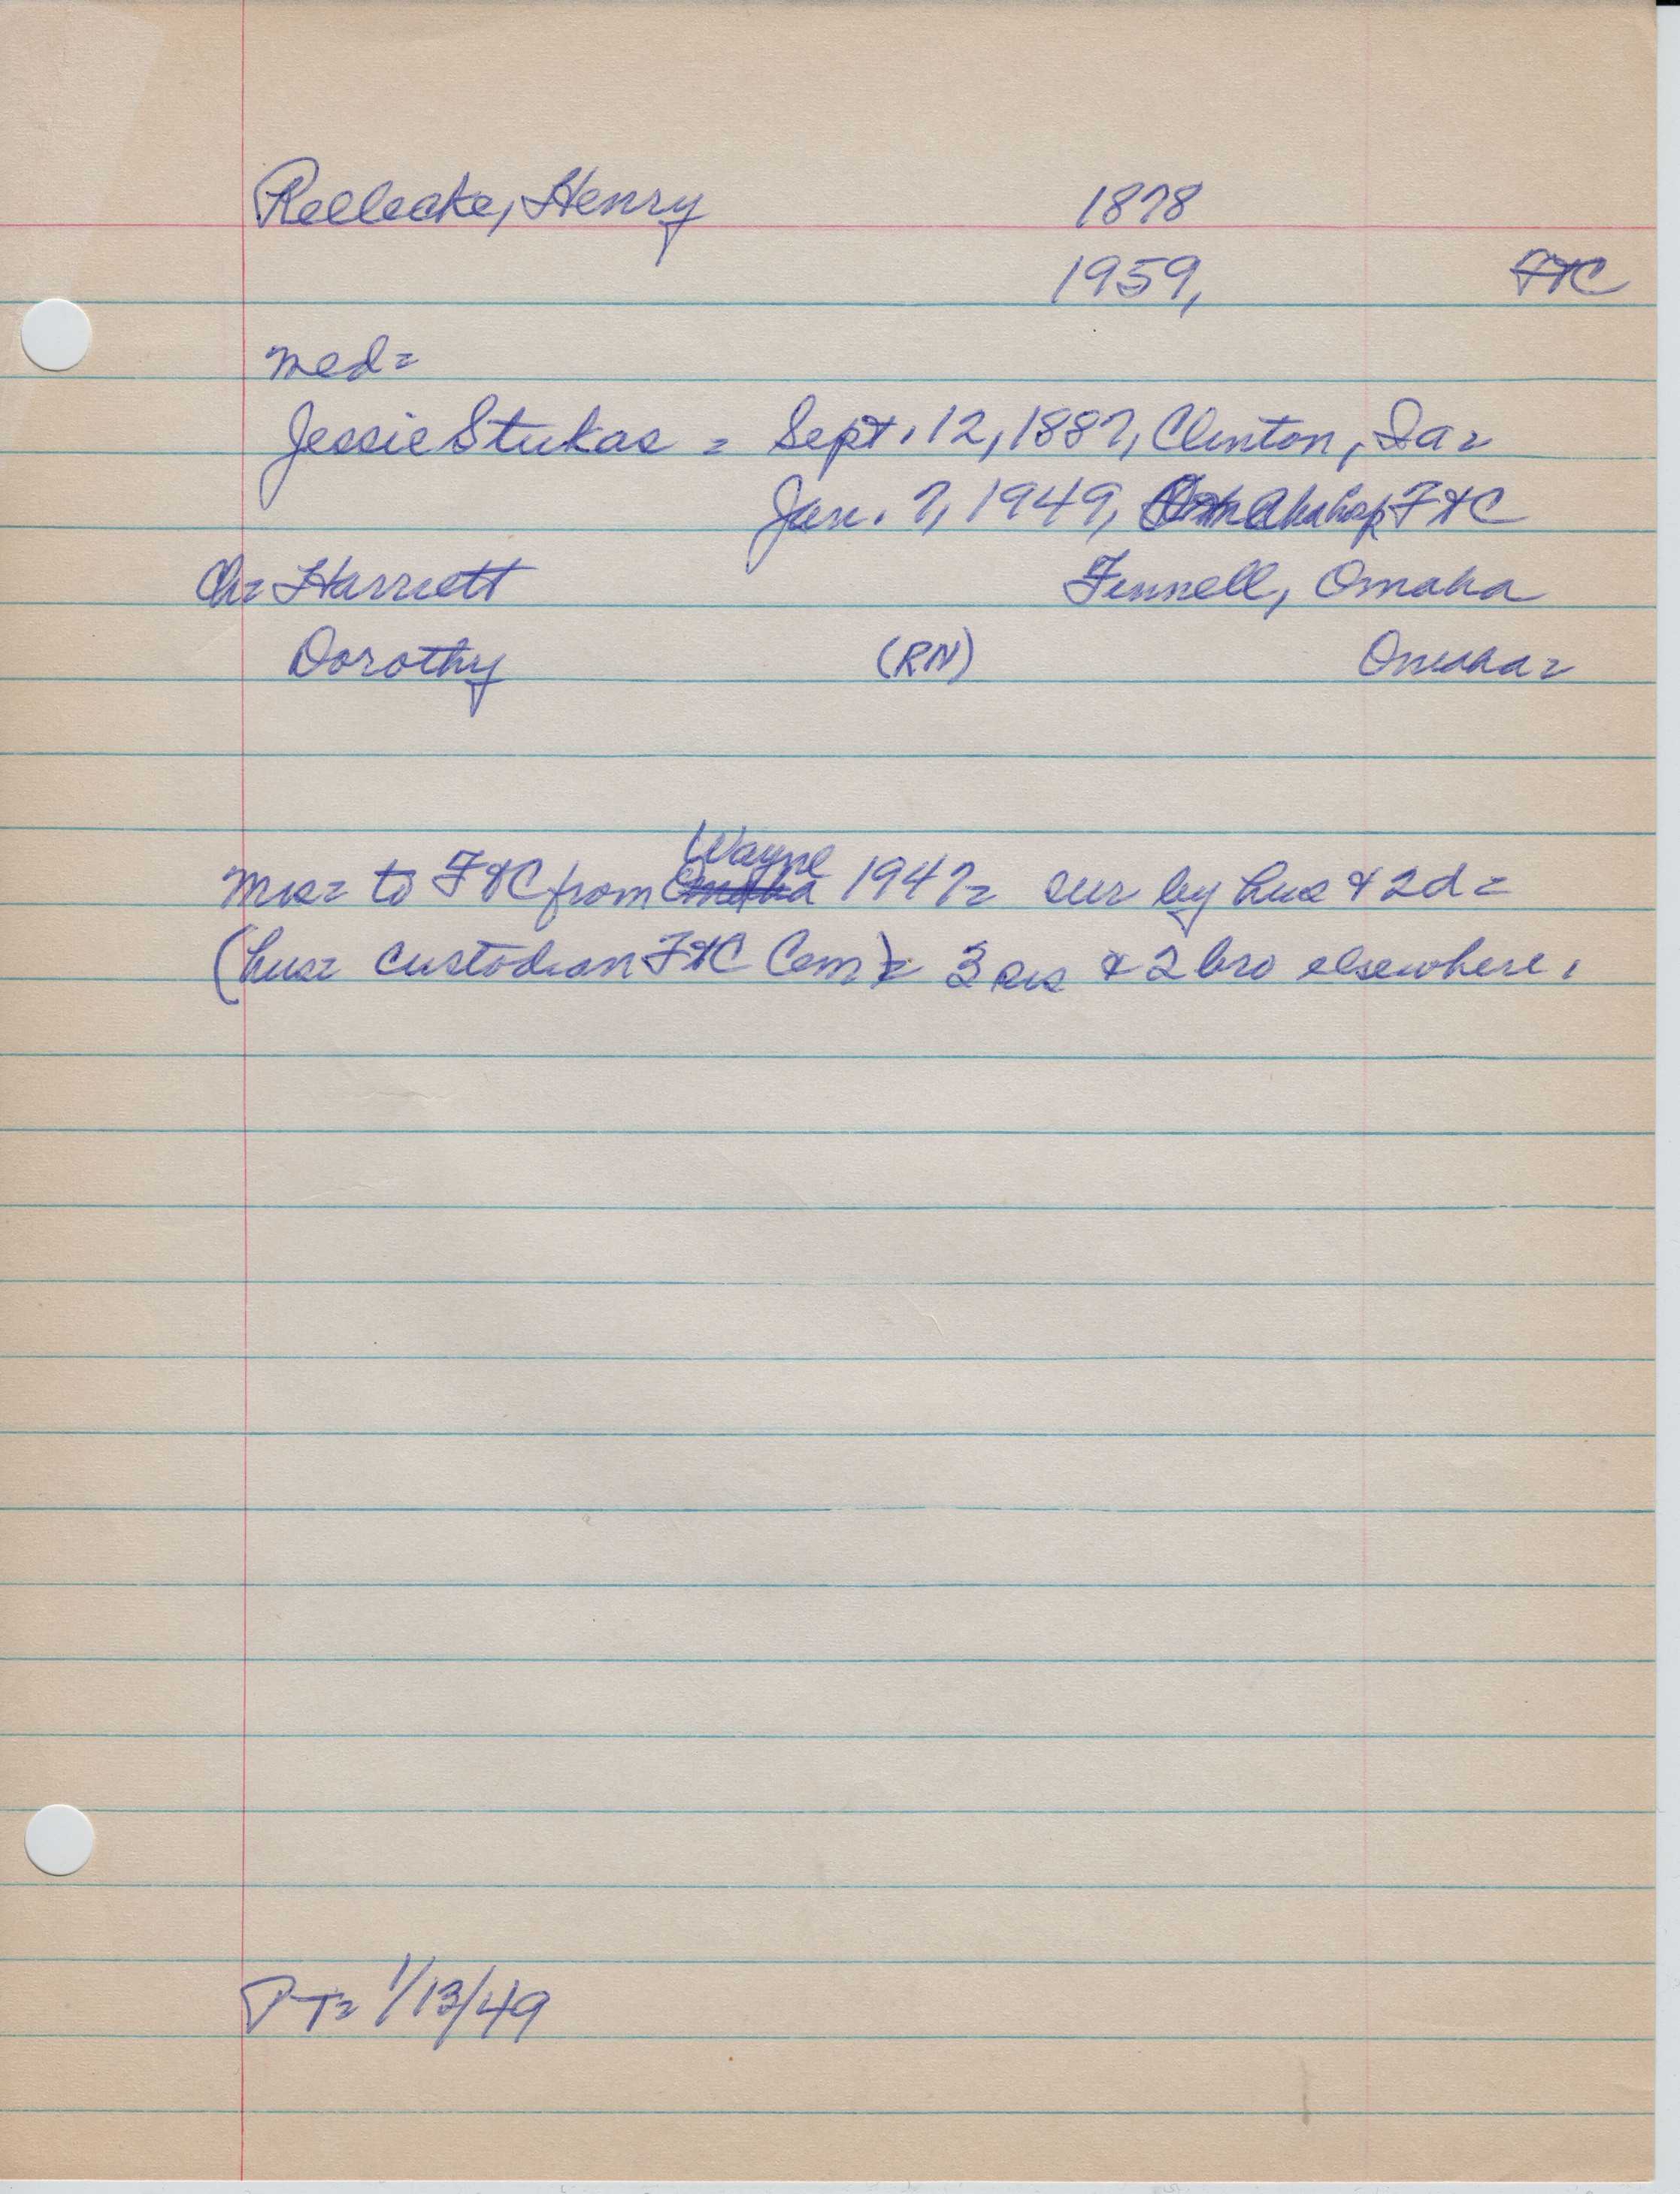 Rellecke, Henry 1878
1959, FtC
med=
Jessie Stukas = Sept. 12, 1887, Clinton, Ia=
Jan. 7, 1949, FtC
Ch= Harriett Fennell, Omaha
Dorothy (RN) Omaha=
Wayne
mvs= to FtC from Omaha 1947= sur by hus & 2d=
(hus= custodian FtC Cem)= 3 sis & 2 bro elsewhere.
PT= 1/13/49